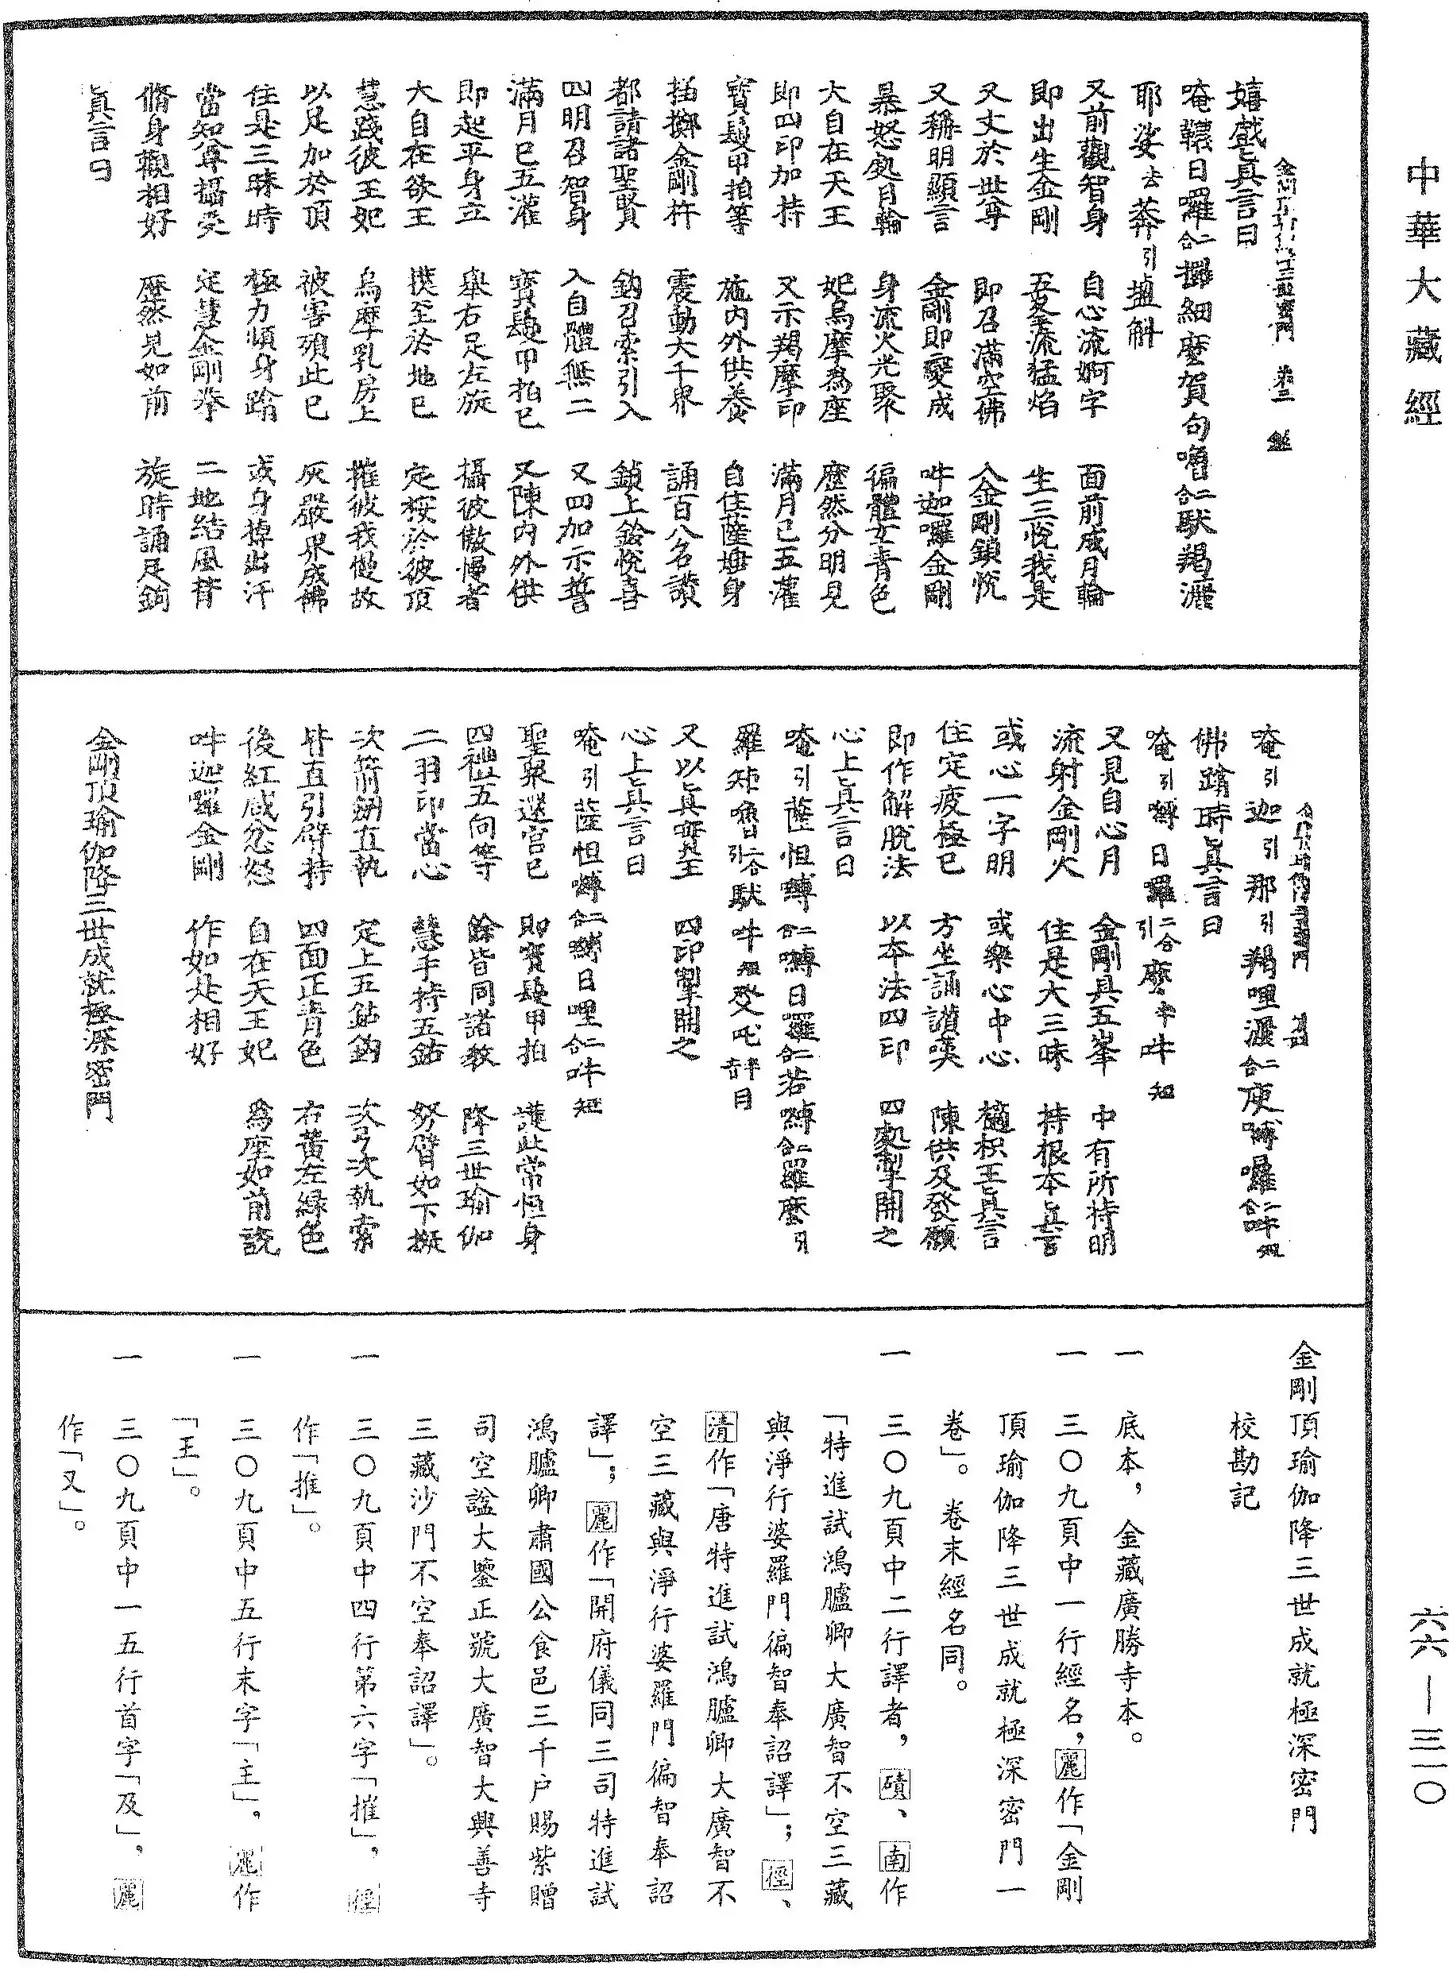 中華大藏經
六六—三一〇
嬉戲真言曰
唵囀日囉二合摄細麼賀句嚕二合馱羯灑
耶娑去莽引搵斛
又前觀智身 自心流婀字 面前成月輪
即出生金剛 五叉流猛焰 生三悅我是
又丈於世尊 即召滿空佛 入金剛鎖悅
又稱明顯言 金剛即變成 吽迦囉金剛
暴怒處月輪 身流火光聚 徧體玄青色
大自在天王 妃烏摩為座 歷然分明見
即四印加持 又示羯摩印 滿月已五灌
寶鬘甲拍等 施內外供養 自住薩埵身
抽擲金剛杵 震動大千界 誦百八名讚
都請諸聖賢 鉤召索引入 鎖上鈴悅喜
四明召智身 入自體無二 又四加示誓
滿月已五灌 寶鬘甲拍已 又陳內外供
即起平身立 舉右足左旋 攝彼傲慢者
大自在欲王 撲至於地已 定桉於彼頂
慧踐彼王妃 烏摩乳房上 摧彼我慢故
以足加於頂 被害殞此已 灰嚴界成佛
住是三昧時 極力傾身踰 或身掉出汗
當知尊攝受 定慧金剛拳 二地結風背
脩身觀相好 歷然見如前 旋時誦足鉤
真言曰
唵引迦引那引羯哩灑二合庾嚩囉二合吽短
佛踰時真言曰
唵引嚩日囉二合引麼吽短
又見自心月 金剛具五峯 中有所持明
流射金剛火 住是大三昧 持根本真言
或心一字明 或樂心中心 樀枳王真言
住定疲極已 方坐誦讚嘆 陳供及發願
即作解脫法 以本法四印 四處掣開之
心上真言曰
唵引薩怛嚩二合嚩日囉二合若嚩二合羅麼引
羅矩嚕二合引馱吽短發吒半音月
又以真實王 四印掣開之
心上真言曰
唵引薩怛嚩二合嚩日哩二合吽短
聖衆還宮已 即寶鬘甲拍 護此常恒身
四禮五向等 餘皆同諸教 降三世瑜伽
二羽印當心 慧手持五鈷 努臂如下擬
次箭劒直執 定上五鈷鉤 次弓次執索
皆直引臂持 四面正青色 右黃左綠色
後紅咸忿怒 自在天王妃 為座如前說
吽迦囉金剛 作如是相好
金剛頂瑜伽降三世成就極深密門
金剛頂瑜伽降三世成就極深密門
校勘記
一 底本，金藏廣勝寺本。
一 三〇九頁中一行經名，麗作「金剛
頂瑜伽降三世成就極深密門一
卷」。卷末經名同。
一 三〇九頁中二行譯者，磧、南作
「特進試鴻臚卿大廣智不空三藏
與淨行婆羅門徧智奉詔譯」；徑、
清作「唐特進試鴻臚卿大廣智不
空三藏與淨行婆羅門徧智奉詔
譯」；麗作「開府儀同三司特進試
鴻臚卿肅國公食邑三千户賜紫贈
司空謚大鑒正號大廣智大興善寺
三藏沙門不空奉詔譯」。
一 三〇九頁中四行第六字「摧」，徑
作「推」。
一 三〇九頁中五行末字「主」，麗作
「王」。
一 三〇九頁中一五行首字「及」，麗
作「又」。